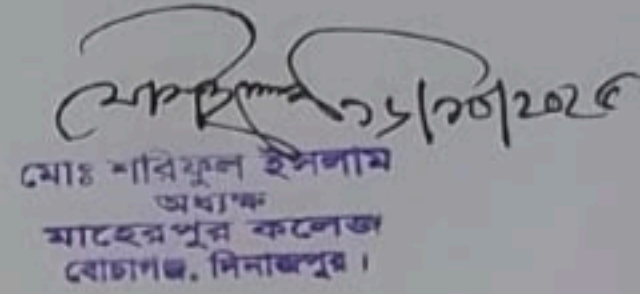 ১৬/১০/২০২৫
মোঃ শরিফুল ইসলাম
অধ্যক্ষ
মাহেরপুর কলেজ
বোচাগঞ্জ, দিনাজপুর।